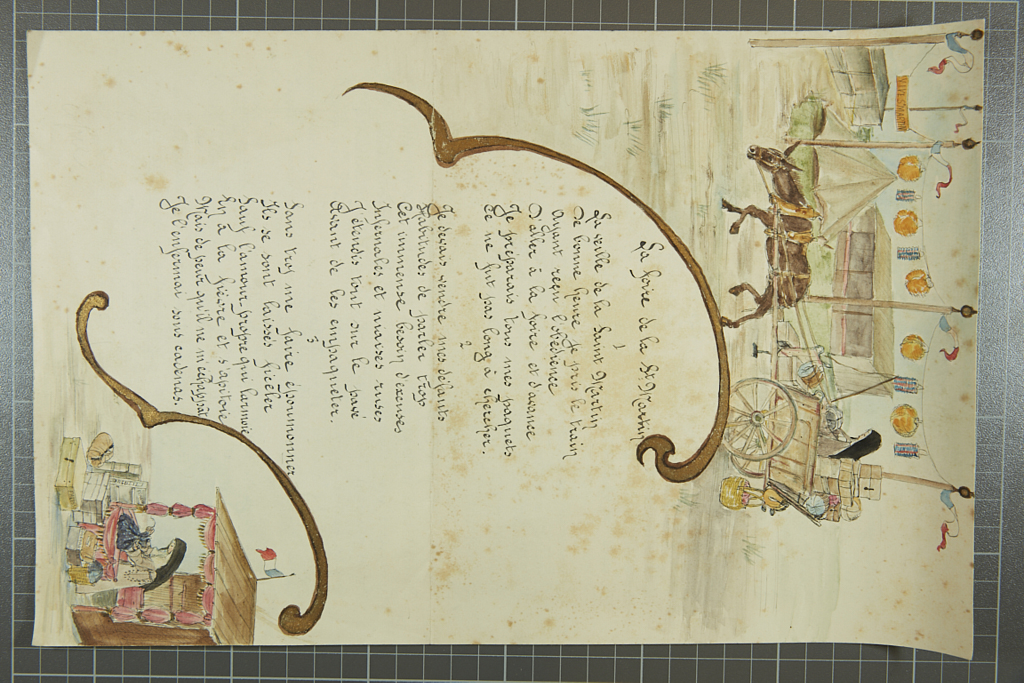 La foire de la St Martin
1
La veille de la Saint Martin
De bonne heure je pris le train
Ayant reçu l'obédience
D'aller à la foire, et d'avance
Je préparais tous mes paquets
Ce ne fut pas long à chercher.
2
Je devais vendre mes défauts
Habitudes de parler trop
Cet immense besoin d'excuses
Infernales et niaises ruses
J'étendis tout sur le pavé
Avant de les empaqueter.
3
Sans trop me faire époumonner
Ils se sont laissés ficeler
Sauf l'amour-propre qui larmoie
Eut à la fièvre et s'apitoie
Mais de peur qu'il ne m'échappât
Je l'enfermai sous cadenas.